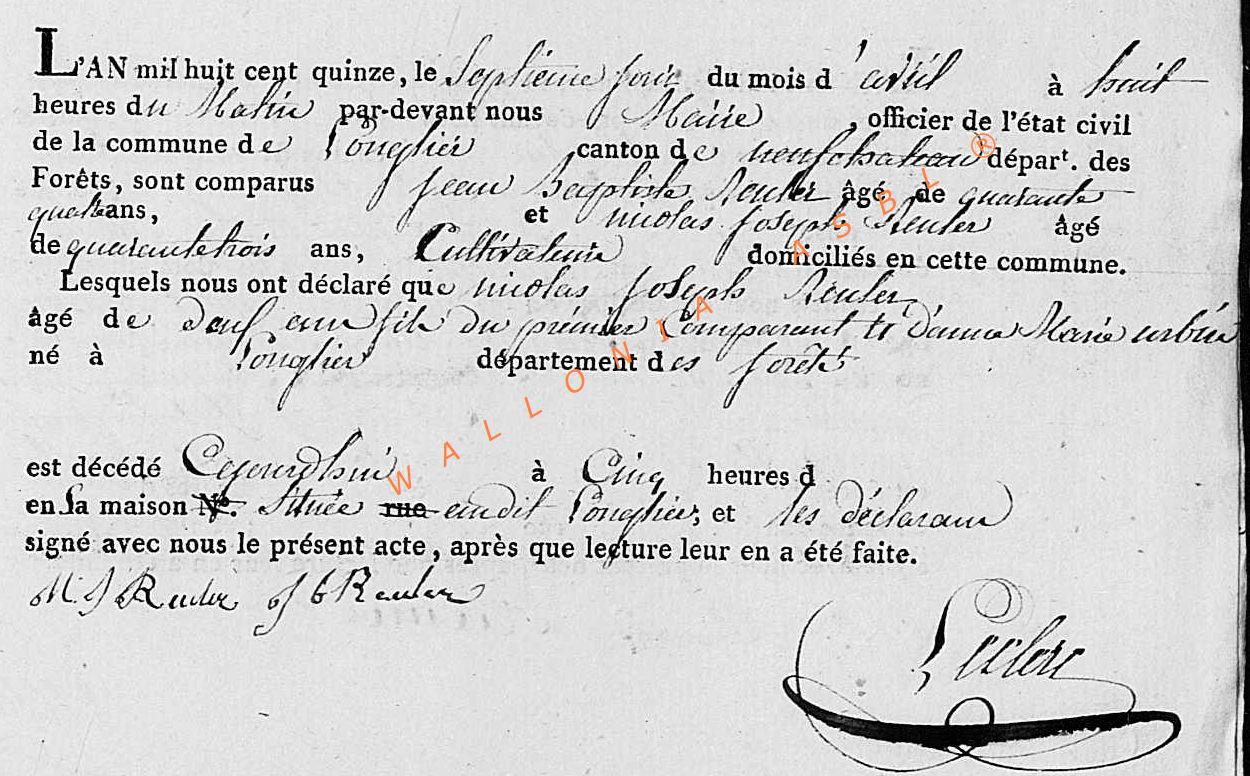 L'AN mil huit cent quinze, le Septieme jour du mois d'avril à huit
heures du Matin par-devant nous Maire, officier de l'état civil
de la commune de Longlier canton de neufchateau dépar<sup>t</sup>. des
Forêts, sont comparus Jean Baptiste Reuler âgé de quarante
quatre ans, et nicolas Joseph Reuler âgé
de quarante trois ans, Cultivateurs domiciliés en cette commune.
Lesquels nous ont déclaré que nicolas Joseph Reuler
âgé de deuf ans fils du prémier Comparant et D'anne Marie urbin
né à Longlier département des forêts
est décédé Cejourdhui à Cinq heures d
en sa maison N°. Située rue audit Longlier, et les déclarans
signé avec nous le présent acte, après que lecture leur en a été faite.
N. J Reuler J b Reuler
Leclerc
WALLONIA ASBL ®